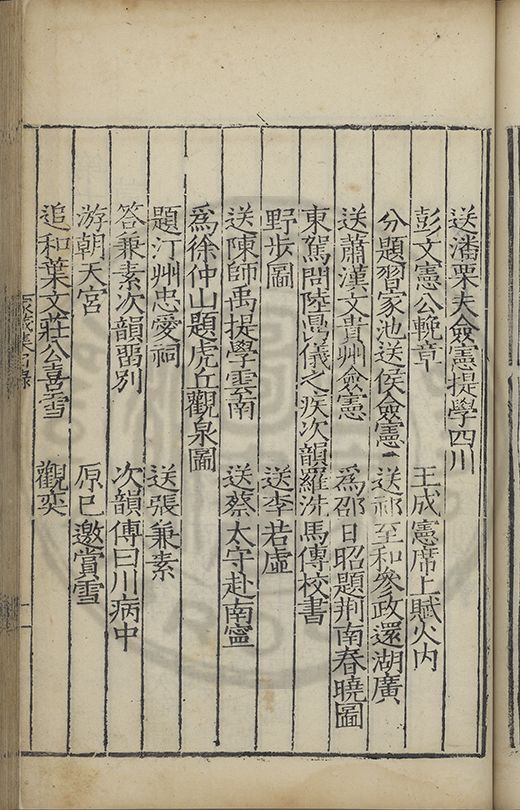 送潘栗夫僉憲提學四川
彭文憲公輓章　王成憲席上賦火內
分題習家池送侯僉憲　送祁至和參政還湖廣
送蕭漢文貴州僉憲　為邵日昭題荊南春曉圖
東駕問陸鼎儀之疾次韻羅洗馬傅校書
野步圖　送李若虛
送陳師禹提學雲南　送蔡太守赴南寧
為徐仲山題虎丘觀泉圖
題汀州忠愛祠　送張兼素
答兼素次韻畱別　次韻傅曰川病中
游朝天宮　原已邀賞雪
追和葉文莊公喜雪　觀奕
家藏集目錄